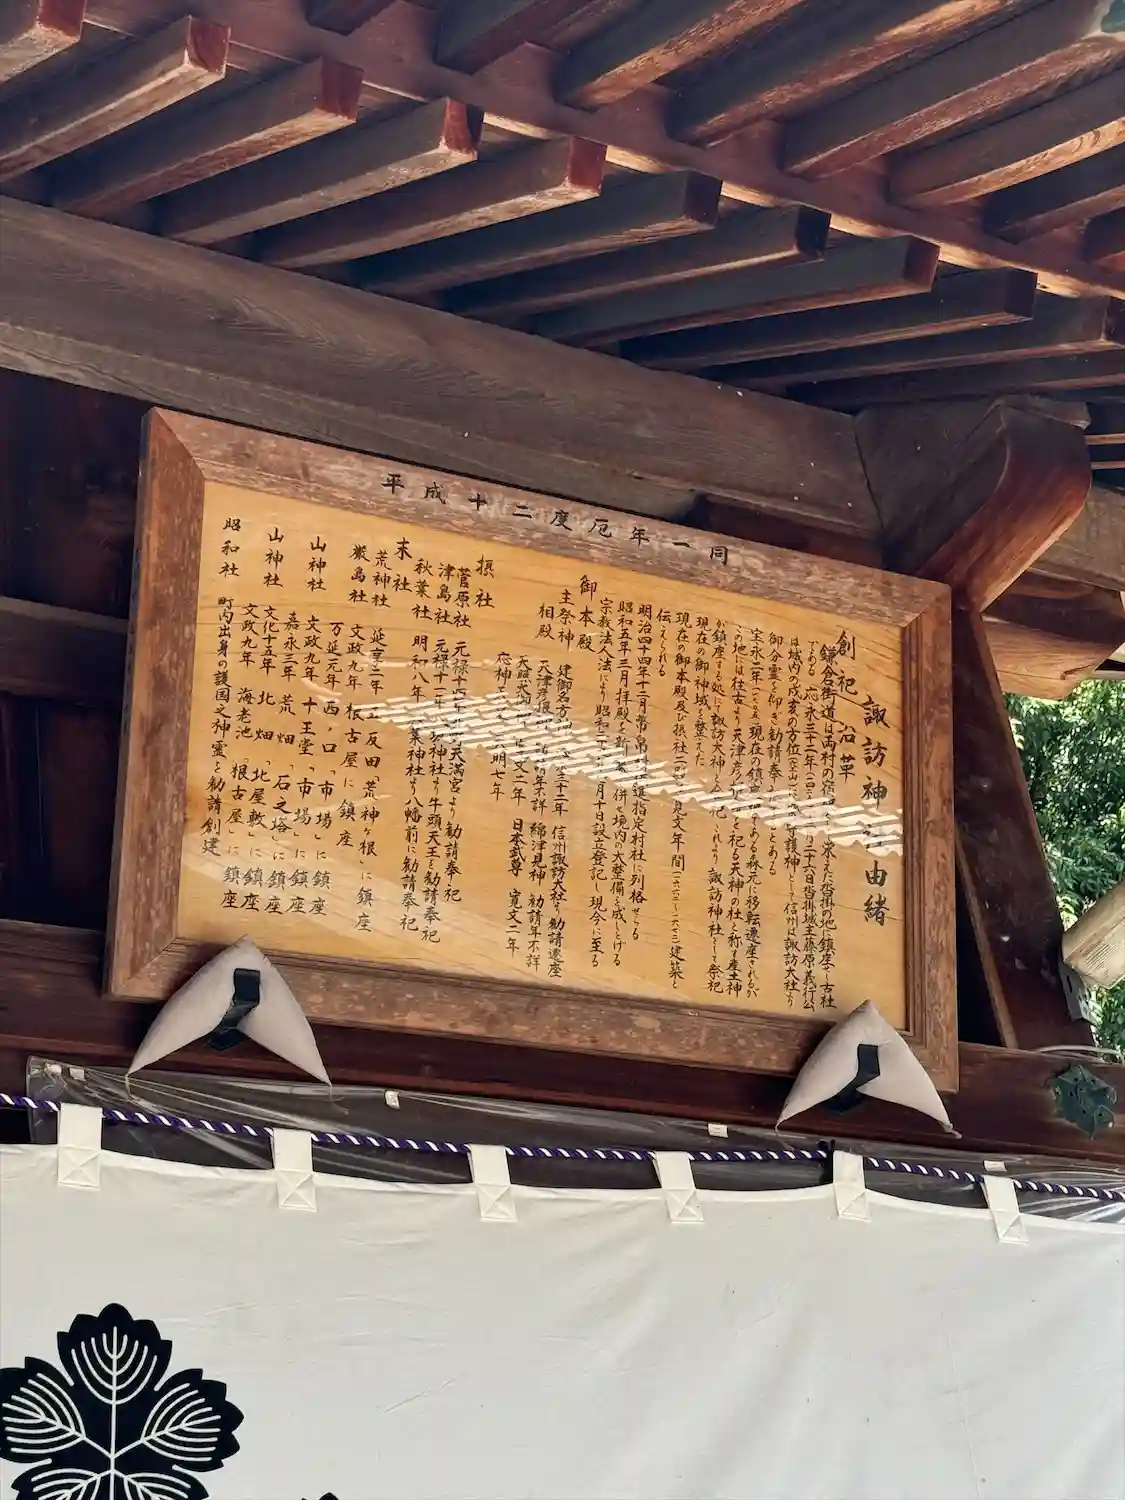 平成十二度厄年一同
諏訪神 由緒
創祀 沿革
鎌倉街道は両村の宿 栄えた沓掛の地に鎮座す古社
である 応永三十二年 二十六日沓掛城主藤原義行公
は城内の戌亥の方位 守護神として信州は諏訪大社より
御分霊を仰ぎ勧請奉 とある
宝永二年 現在の鎮 ある森元に移転遷座されるが
この地には往古より天津彦 を祀る天神の社と称す産土神
が鎮座する処にて諏訪大神と 祀 より諏訪神社として祭祀
現在の御神域を整えた
現在の御本殿及び摂社二 寛文年間 建築と
伝えられる
明治四十四年十二月幣帛 進指定村社に列格せらる
昭和五年三月拝殿を新 併せ境内の大整備を成しとげる
宗教法人法により昭和二 月十日設立登記し現今に至る
御本殿
主祭神 建御名方 三十二年 信州諏訪大社より勧請遷座
相殿 天津彦 勧請年不詳 綿津見神 勧請年不詳
天 寛文二年 日本武尊 寛文二年
応神天 文明七年
摂社
菅原社 元禄十四年 天満宮より勧請奉祀
津島社 元禄十一年 神社より牛頭天王を勧請奉祀
秋葉社 明和八年 葉神社より八幡前に勧請奉祀
末社
荒神社 延享二年 反田「荒神ヶ根」に鎮座
厳島社 文政九年 根古屋に鎮座
万延元年 西ノ口「市場」に鎮座
山神社 文政九年 十王堂「市場」に鎮座
嘉永三年 荒畑「石之塔」に鎮座
山神社 文化十五年 北畑「北屋敷」に鎮座
文政九年 海老池「根古屋」に鎮座
昭和社 町内出身の護国之神霊を勧請創建